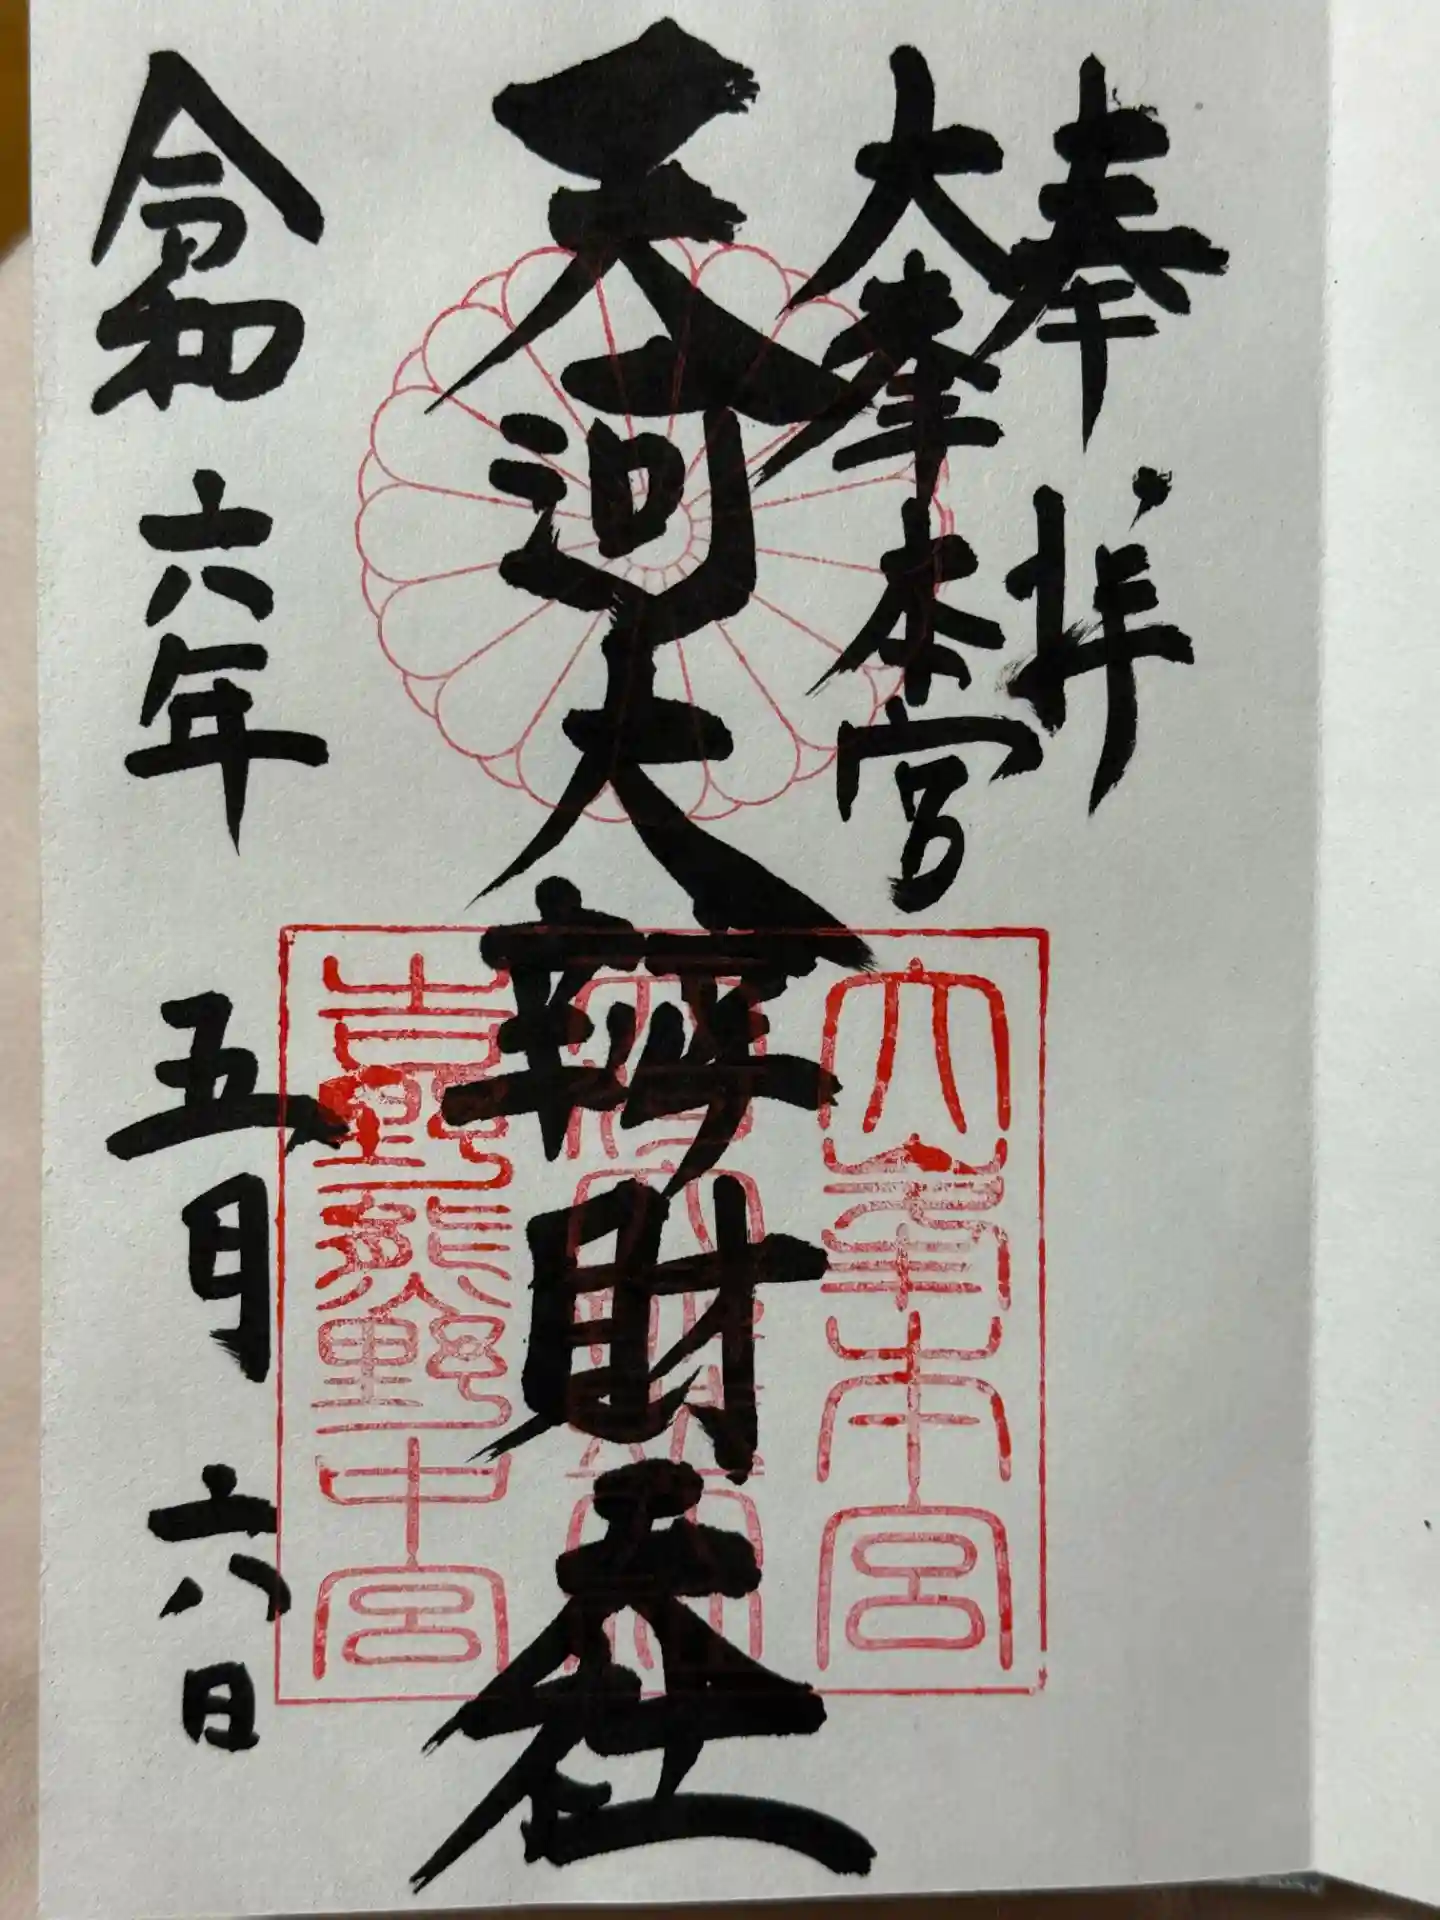 奉拝
大峯本宮
天河大辨財天社
令和六年 五月 六日
大峯本宮
吉野熊野中宮